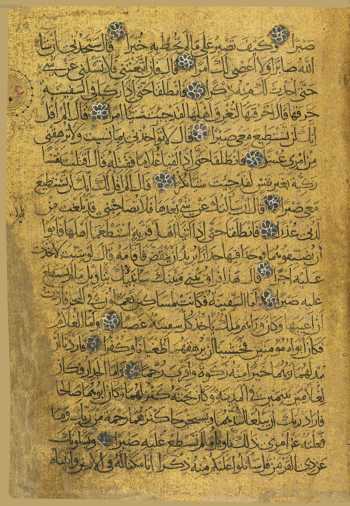 صبرا وكيف تصبر على ما لم تحط به خبرا قال ستجدني إن شاء
الله صابرا ولا أعصي لك أمرا قال فإن اتبعتني فلا تسئلني عن شيء
حتى أحدث لك منه ذكرا فانطلقا حتى إذا ركبا في السفينة
خرقها قال أخرقتها لتغرق أهلها لقد جئت شيئا إمرا قال ألم أقل
إنك لن تستطيع معي صبرا قال لا تؤاخذني بما نسيت ولا ترهقني
من أمري عسرا فانطلقا حتى إذا لقيا غلاما فقتله قال أقتلت نفسا
زكية بغير نفس لقد جئت شيئا نكرا قال ألم أقل لك إنك لن تستطيع
معي صبرا قال إن سألتك عن شيء بعدها فلا تصاحبني قد بلغت من
لدني عذرا فانطلقا حتى إذا أتيا أهل قرية استطعما أهلها فأبوا
أن يضيفوهما فوجدا فيها جدارا يريد أن ينقض فأقامه قال لو شئت لاتخذت
عليه أجرا قال هذا فراق بيني وبينك سأنبئك بتأويل ما لم تستطع
عليه صبرا أما السفينة فكانت لمساكين يعملون في البحر فأردت
أن أعيبها وكان وراءهم ملك يأخذ كل سفينة غصبا وأما الغلام
فكان أبواه مؤمنين فخشينا أن يرهقهما طغيانا وكفرا فأردنا أن
يبدلهما ربهما خيرا منه زكوة وأقرب رحما وأما الجدار فكان
لغلامين يتيمين في المدينة وكان تحته كنز لهما وكان أبوهما صالحا
فأراد ربك أن يبلغا أشدهما ويستخرجا كنزهما رحمة من ربك وما
فعلته عن أمري ذلك تأويل ما لم تسطع عليه صبرا ويسئلونك
عن ذي القرنين قل سأتلوا عليكم منه ذكرا إنا مكنا له في الأرض وآتيناه